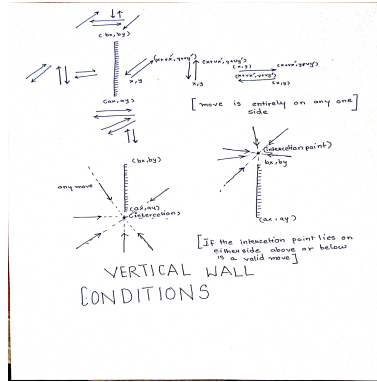 (bx, by)
(x+x', y+y')
(x+x', y+y')
x, y
x, y
(x, y)
(x+x', y+y')
(x+x', y+y')
(x, y)
(ax, ay)
[move is entirely on any one
side]
(bx, by)
any move
(ax, ay)
(intercetion)
(intercetion point)
bx, by
(ax, ay)
[If the intercetion point lies on
eitherside above or below
is a valid move]
VERTICAL WALL
CONDITIONS